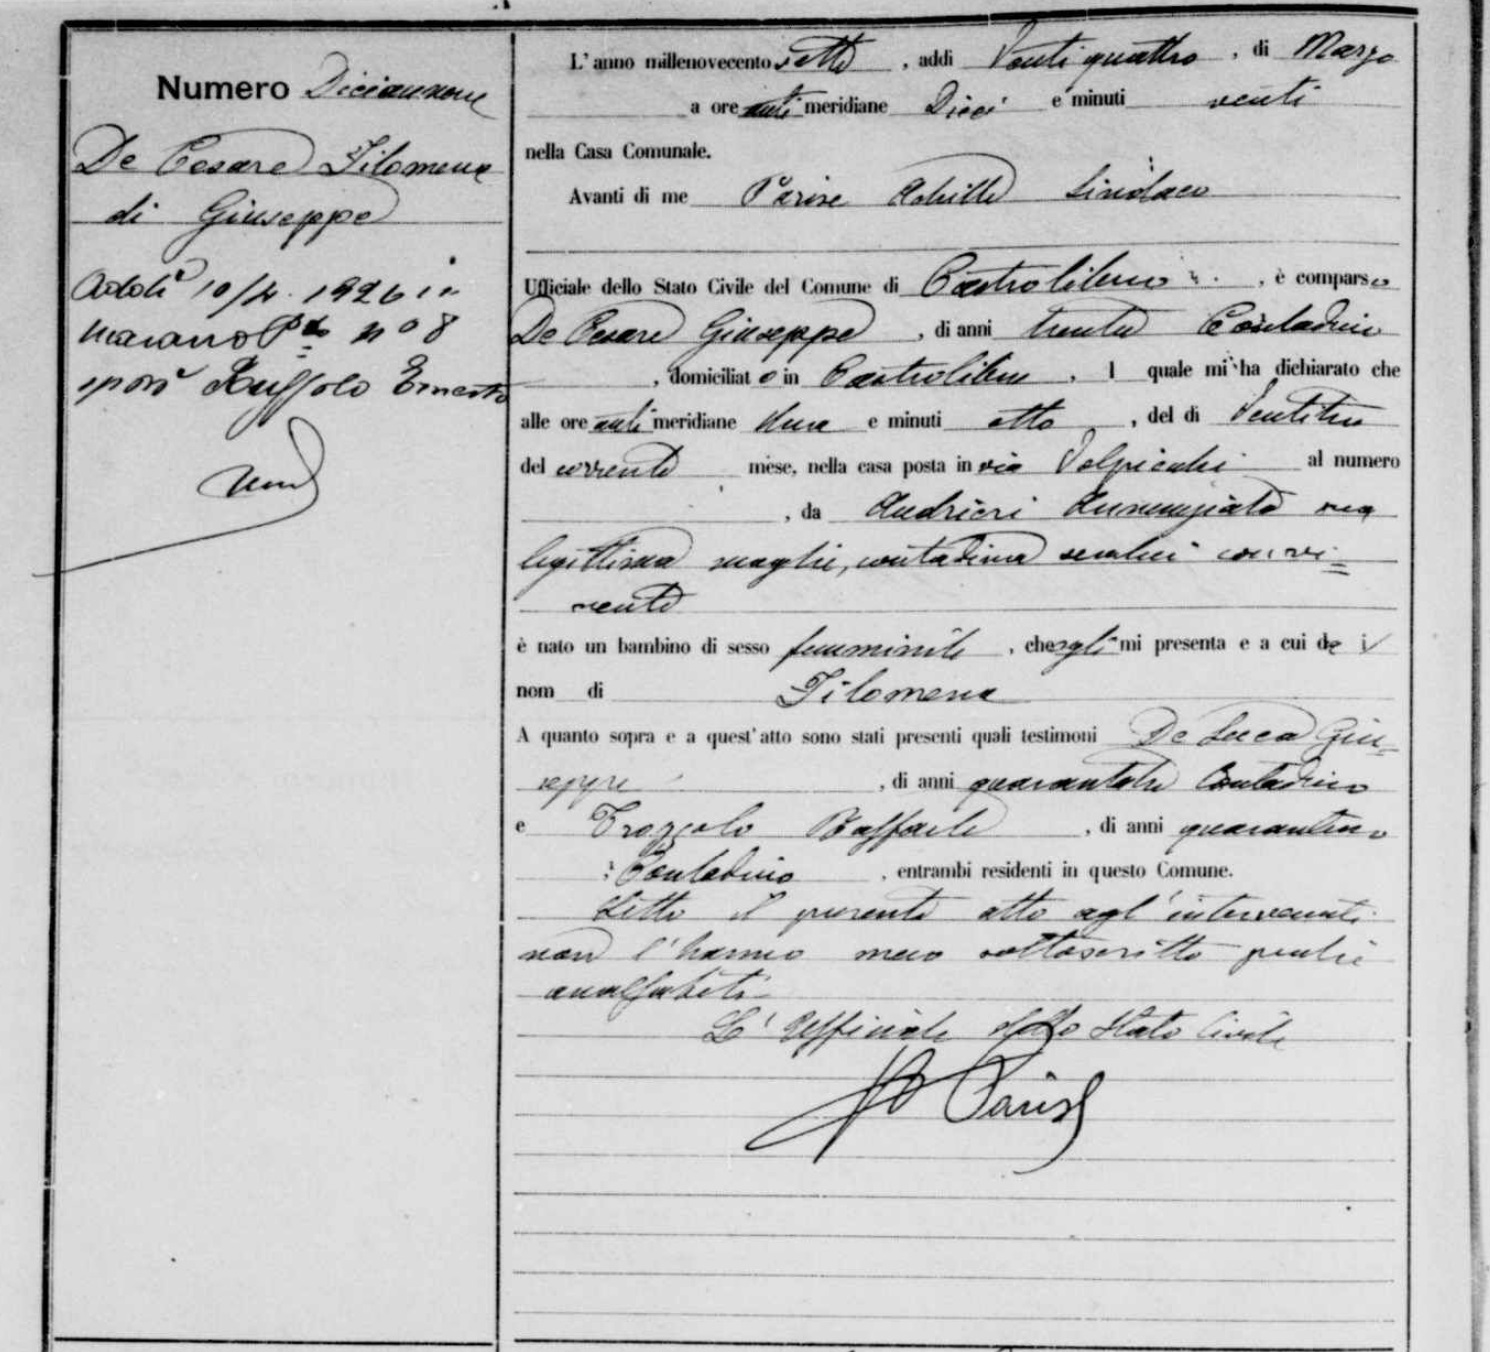 Numero Diciannove
De Cesare Filomena
di Giuseppe
Addì 10/4. 1926 in
Marano P.to n° 8
sposò Ruffolo Ernesto
L'anno millenovecento sette, addi Venti quattro, di Marzo
a ore anti meridiane Dieci e minuti venti
nella Casa Comunale.
Avanti di me Parise Achille Sindaco
Ufficiale dello Stato Civile del Comune di Castrolibero, è comparso
De Cesare Giuseppe, di anni trenta Contadino
, domiciliato in Castrolibero, l quale mi ha dichiarato che
alle ore anti meridiane una e minuti otto, del di Ventitre
del corrente mese, nella casa posta in via Volpicchi al numero
, da Andrieri Annunziata sua
legittima moglie, contadina seco lui convi=
vente
è nato un bambino di sesso femminile, che egli mi presenta e a cui dà i
nom di Filomena
A quanto sopra e a quest'atto sono stati presenti quali testimoni De Luca Giu=
seppe, di anni quarantatre Contadino
e Trozzolo Raffaele, di anni quarantuno
Contadino, entrambi residenti in questo Comune.
Letto il presente atto agl'intervenuti
non l'hanno meco sottoscritto perchè
analfabeti
L'Uffiziale dello Stato Civile
Parise